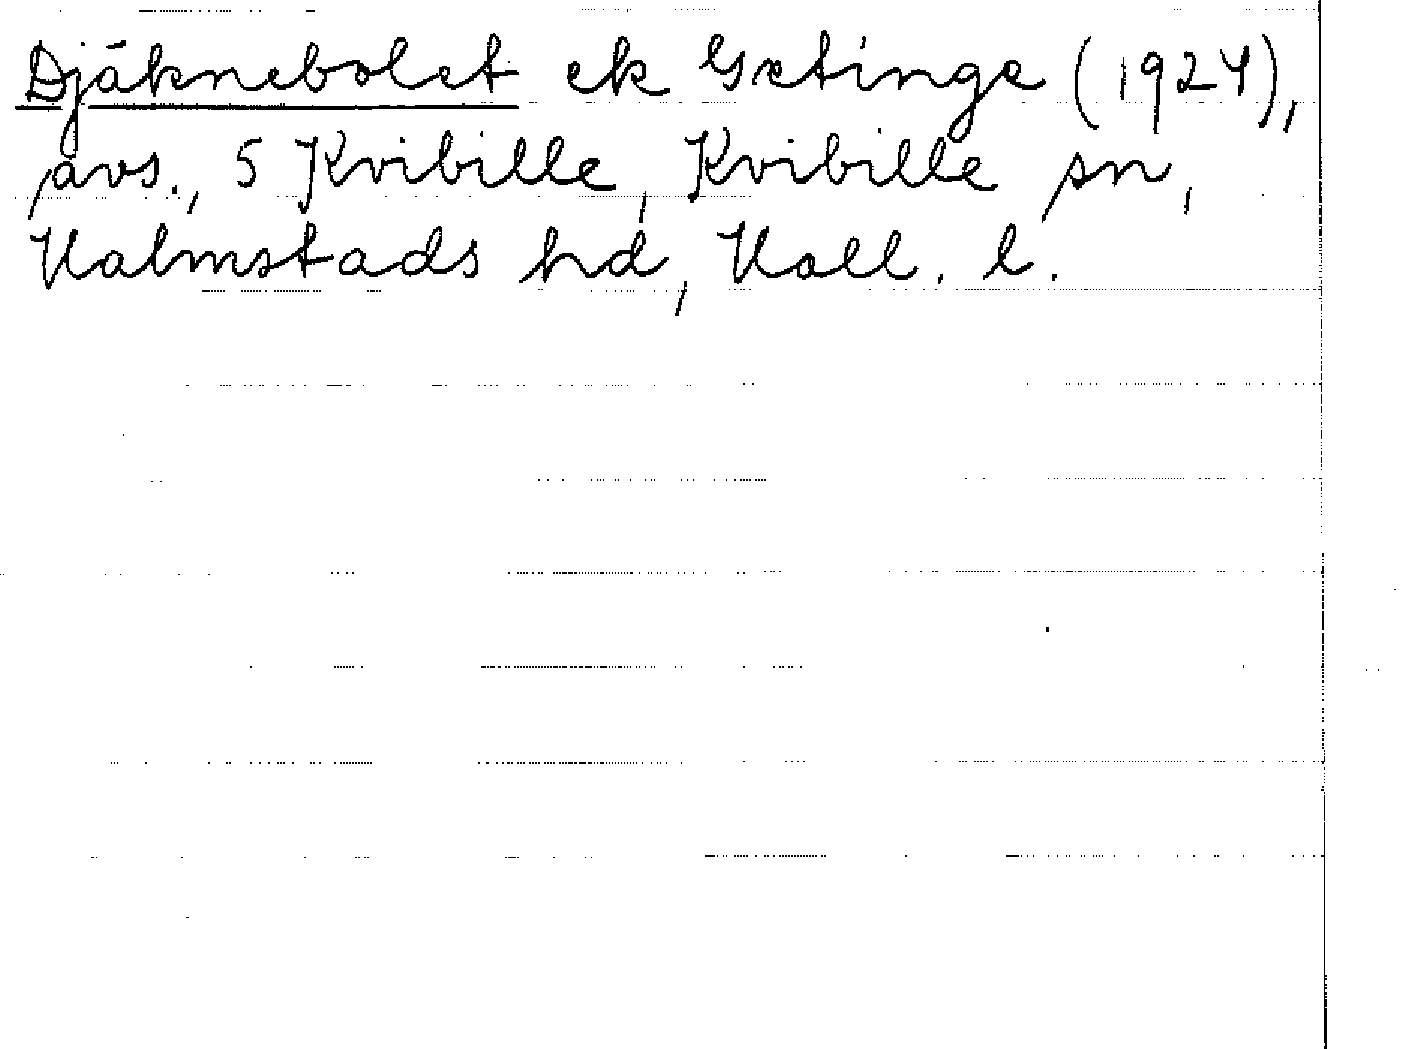 Djäknebolet ek Getinge (1924),
avs., 5 Kvibille, Kvibille sn,
Halmstads hd, Hall. l.